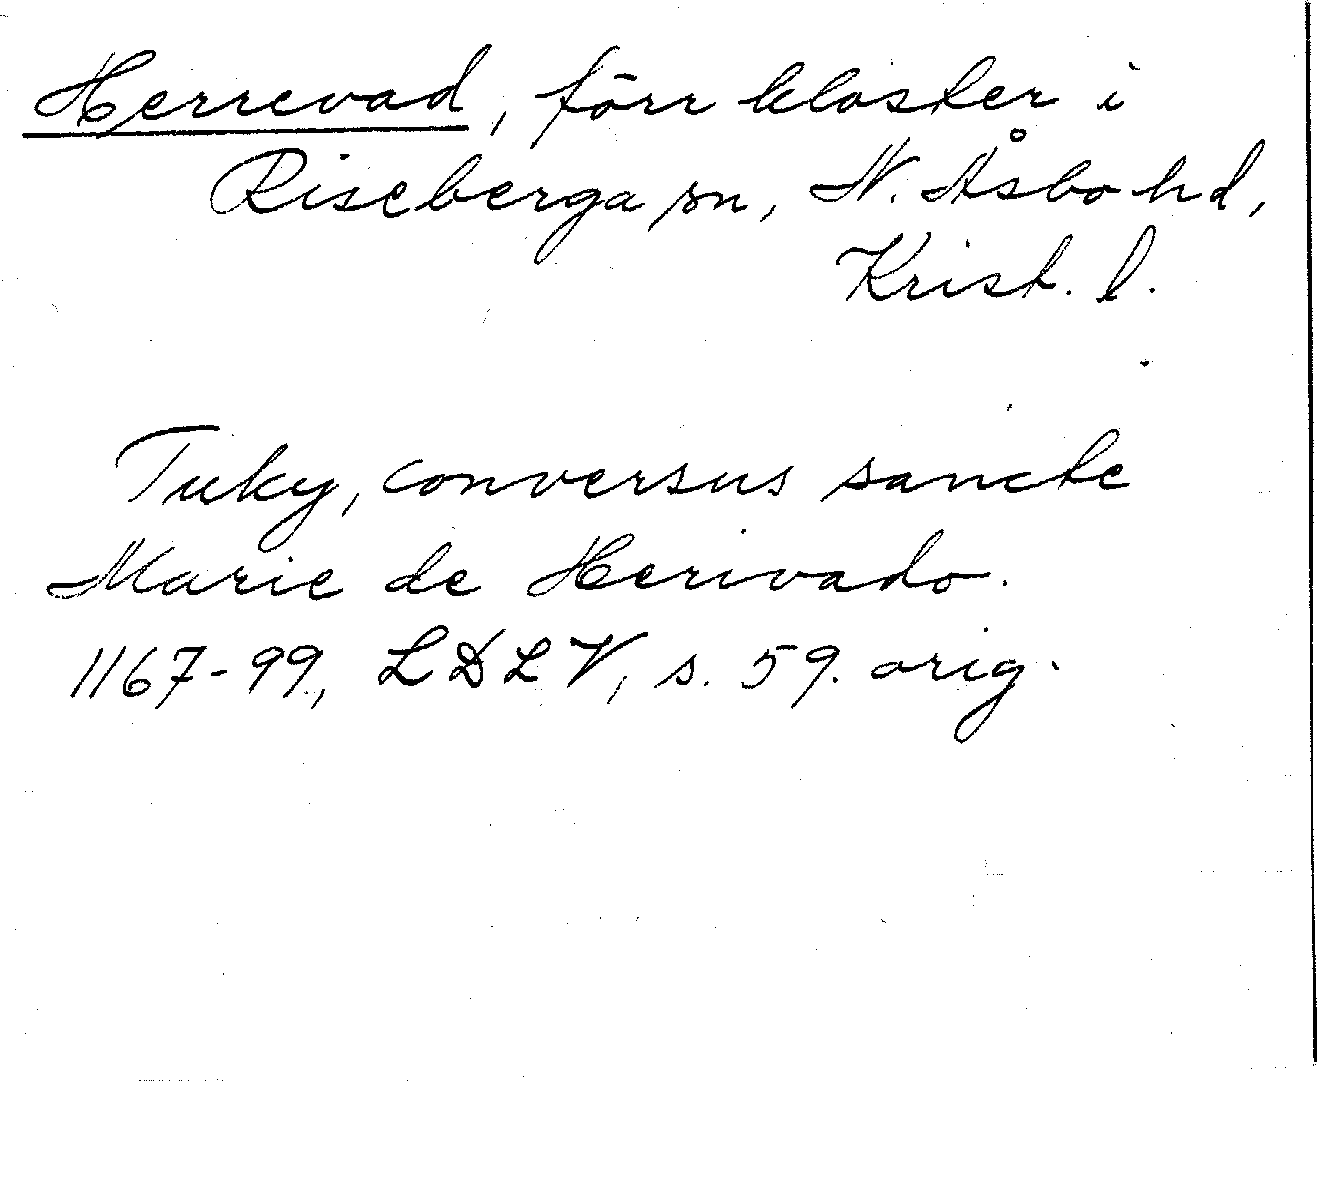 Herrevad, förr kloster i
Riseberga sn, N. Åsbo hd,
Krist. l.
Tuky, conversus sancte
Marie de Herivado.
1167-99, LDLV, s. 59. orig.